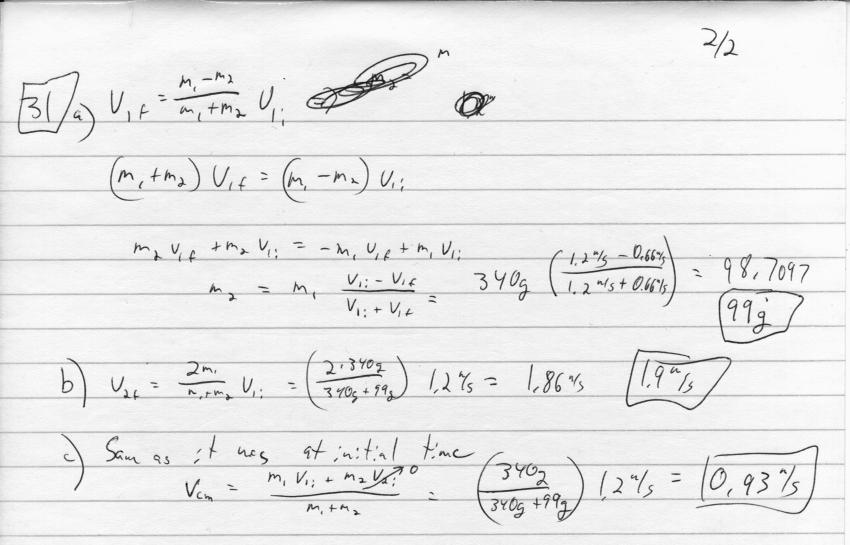 2/2
31 a) V₁f = (m₁ - m₂)/(m₁ + m₂) V₁i
(m₁ + m₂) V₁f = (m₁ - m₂) V₁i
m₂ V₁f + m₂ V₁i = -m₁ V₁f + m₁ V₁i
m₂ = m₁ (V₁i - V₁f)/(V₁i + V₁f) = 340g ((1.2 m/s - 0.66 m/s)/(1.2 m/s + 0.66 m/s)) = 98.7097
99g
b) V₂f = 2m₁/(m₁+m₂) V₁i = (2·340g/(340g + 99g)) 1.2 m/s = 1.86 m/s 1.9 m/s
c) Sam as it was at initial time
Vcm = (m₁ V₁i + m₂ V₂i → 0)/(m₁ + m₂) = (340g/(340g + 99g)) 1.2 m/s = 0.93 m/s